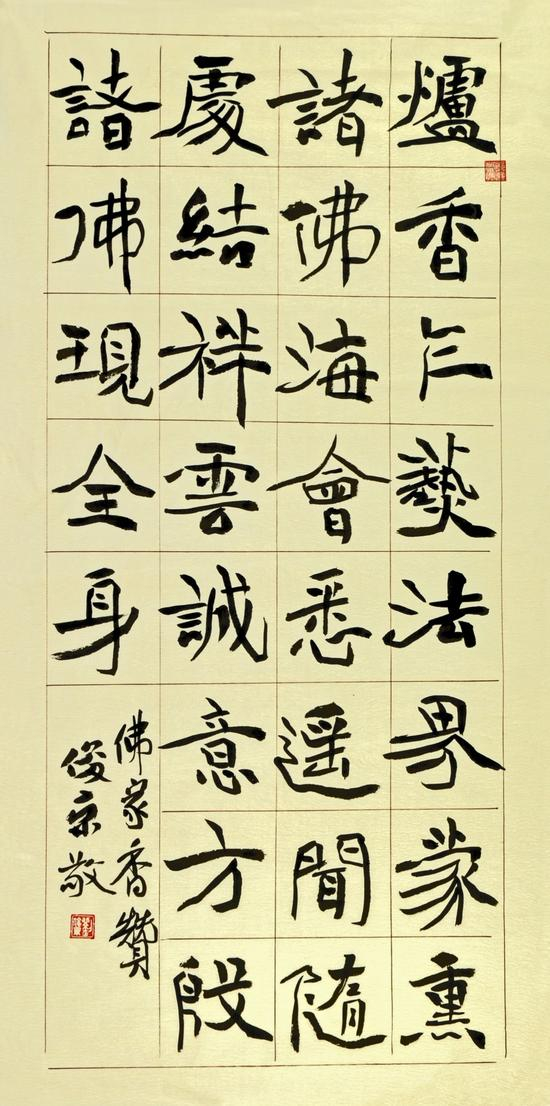 爐香乍爇法界蒙熏
諸佛海會悉遥聞隨
處結祥雲誠意方殷
諸佛現全身
佛家香贊
俊京敬